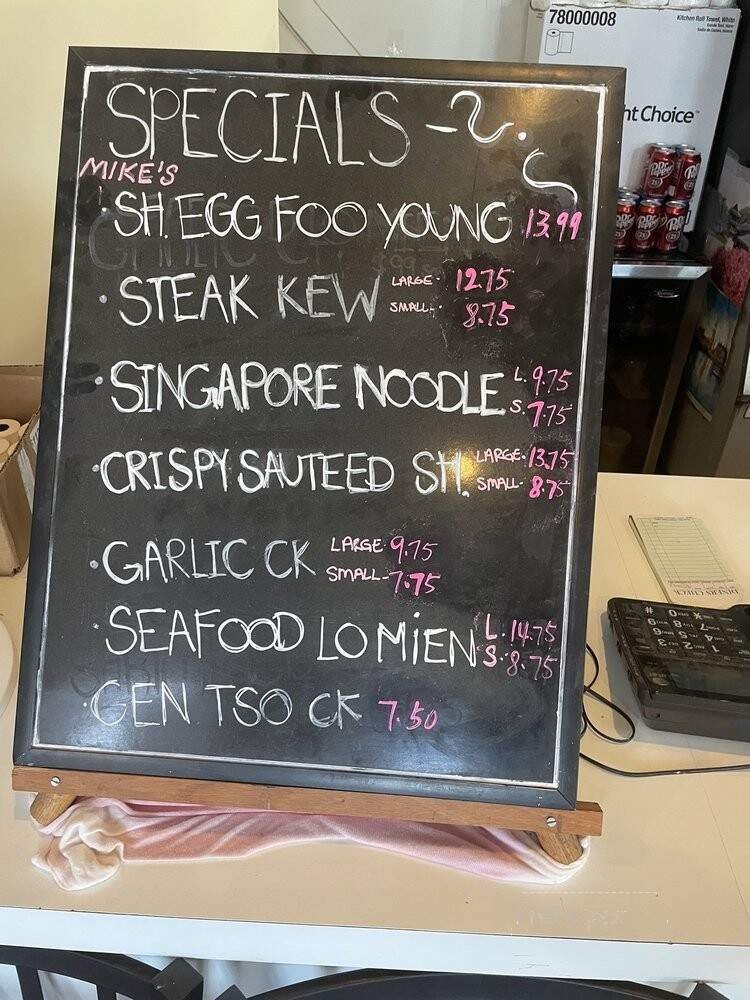 SPECIALS
MIKE'S
SH. EGG FOO YOUNG 13.99
STEAK KEW LARGE- 12.75
SMALL- 8.75
SINGAPORE NOODLE L. 9.75
S. 7.75
CRISPY SAUTEED SH. LARGE- 13.75
SMALL- 8.75
GARLIC CK LARGE 9.75
SMALL- 7.75
SEAFOOD LO MIEN L. 14.75
S. 8.75
GEN TSO CK 7.50
78000008
Kitchen Roll Towel, White
ht Choice
Dr Pepper
DINERS CHECK